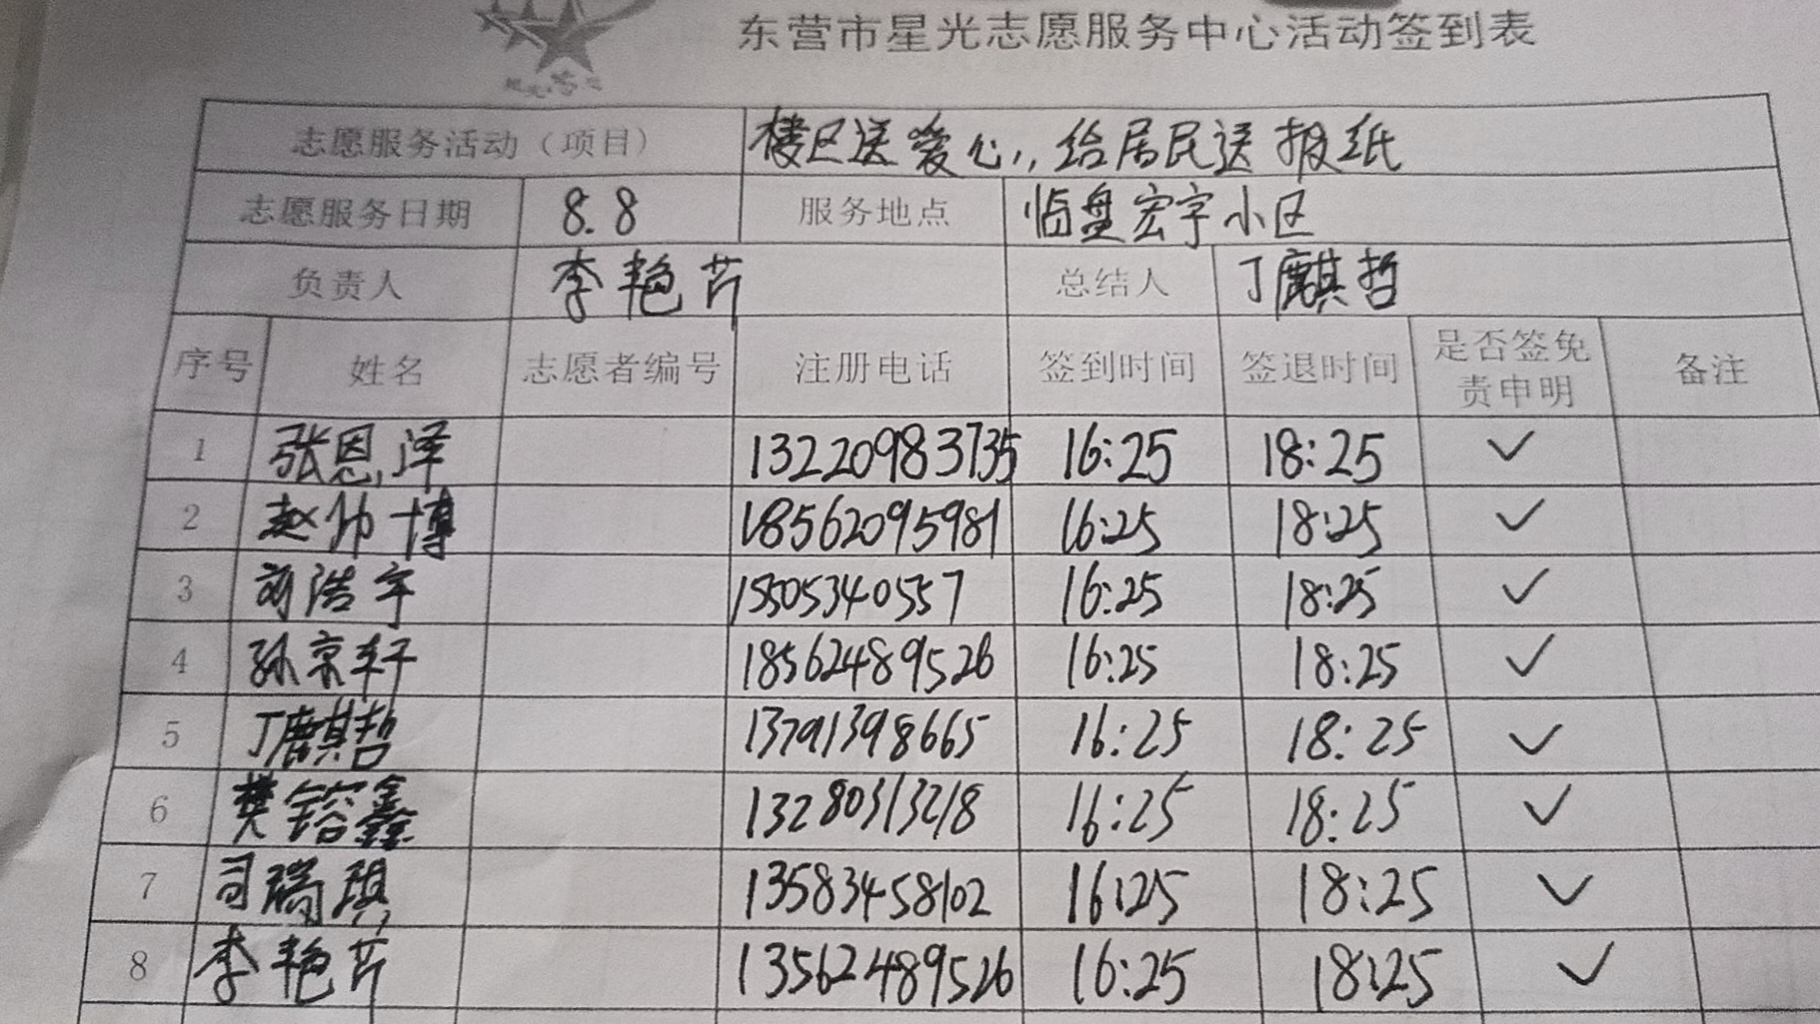 东营市星光志愿服务中心活动签到表
志愿服务活动（项目） 楼区送爱心,,给居民送报纸
志愿服务日期 8.8 服务地点 临盘宏宇小区
负责人 李艳芹 总结人 丁麒哲
序号 姓名 志愿者编号 注册电话 签到时间 签退时间 是否签免责申明 备注
1 张恩泽 13220983735 16:25 18:25 ✓
2 赵帅博 18562095981 16:25 18:25 ✓
3 刘浩宇 15505340557 16:25 18:25 ✓
4 孙京轩 18562489526 16:25 18:25 ✓
5 丁麒哲 13791398665 16:25 18:25 ✓
6 樊镕鑫 13280313218 16:25 18:25 ✓
7 司瑞琪 13583458102 16:25 18:25 ✓
8 李艳芹 13562489526 16:25 18:25 ✓